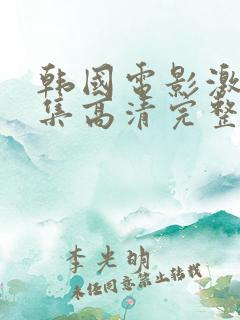 韩国电影激
集高清完整
李光明
未经同意禁止转载